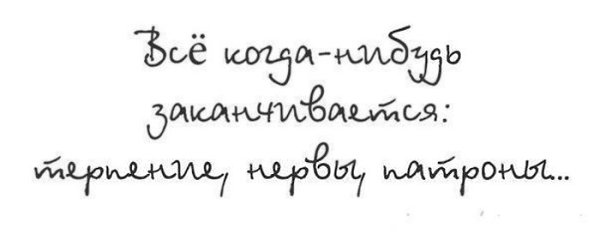 Всё когда-нибудь
заканчивается:
терпение, нервы, патроны...